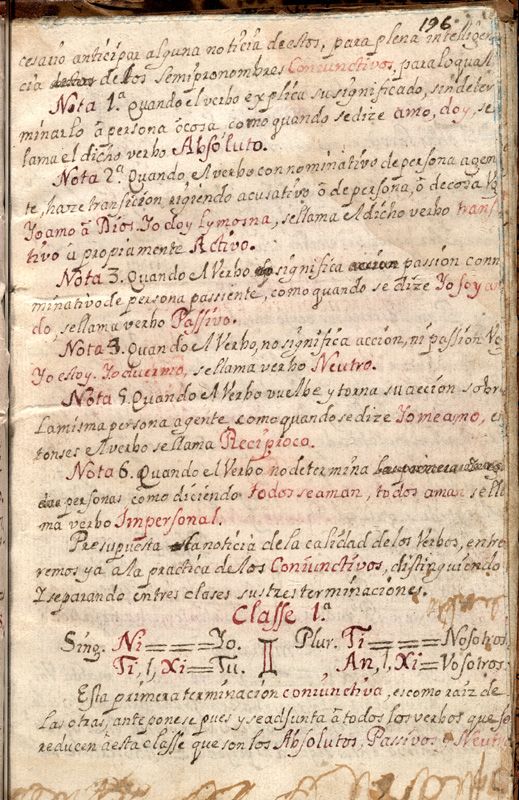 196.
cesario anticipar alguna noticia destos, para plena intelligen
cia de los Semipronombres Coniunctivos, para lo qual
Nota 1ª. Quando el verbo explica su significado, sin deter
minarlo à persona ò cosa, como quando se dize amo, doy, se
lama el dicho verbo Absoluto.
Nota 2ª. Quando el verbo con nominativo de persona agen
te, haze transicion rigiendo acusativo ò de persona, ò de cosa Vg
Yo amo à Dios. Yo doy lymosna, se llama el dicho verbo transi
tivo à propiamente Activo.
Nota 3. Quando el Verbo significa accion passion con n
minativo de persona passiente, como quando se dize Yo soy a
do, se llama verbo Passivo.
Nota 3. Quando el Verbo, no significa accion, ni passion Vg
Yo estoy. Yo duermo, se llama verbo Neutro.
Nota 5. Quando el Verbo vuelbe y torna su accion sobre
la misma persona agente como quando se dize Yo me amo, en
tonses el verbo se llama Reciproco.
Nota 6. Quando el Verbo no determina
personas como diciendo todos se aman, todos aman se lla
ma verbo Impersonal.
Presupuesta esta noticia de la calidad de los Verbos, entra
remos ya a la practica de los Coniunctivos, distinguiendo
Y separando en tres clases sus tres terminaciones.
Classe 1.ª
Sing. Ni=== Yo. II Plur. Ti=== Nosotros
Ti, l, Xi= Tu. An, l, Xi= Vosotros
Esta primera terminacion coniunctiva, es como raiz de
las otras, antepone se pues y se adjunta à todos los verbos que se
reducen à esta classe que son los Absolutos, Passivos y Neutro